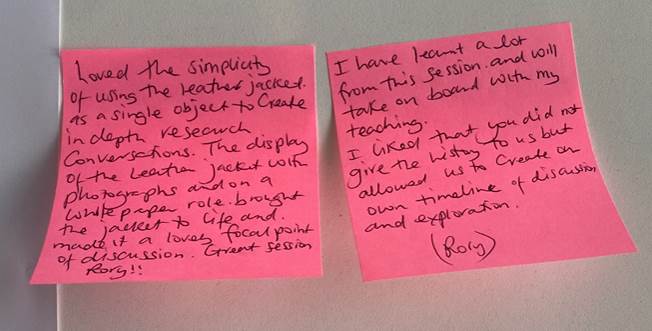 Loved the simplicity
of using the leather jacket.
as a single object to create
in depth research
conversations. The display
of the leather jacket with
photographs and on a
white paper role. brought
the jacket to life and.
made it a lovely focal point
of discussion. Great session
Rory!!
I have learnt a lot
from this session. and will
take on board with my
teaching.
I liked that you did not
give the history to us but
allowed us to create an
own timeline of discussion
and exploration.
(Rory)